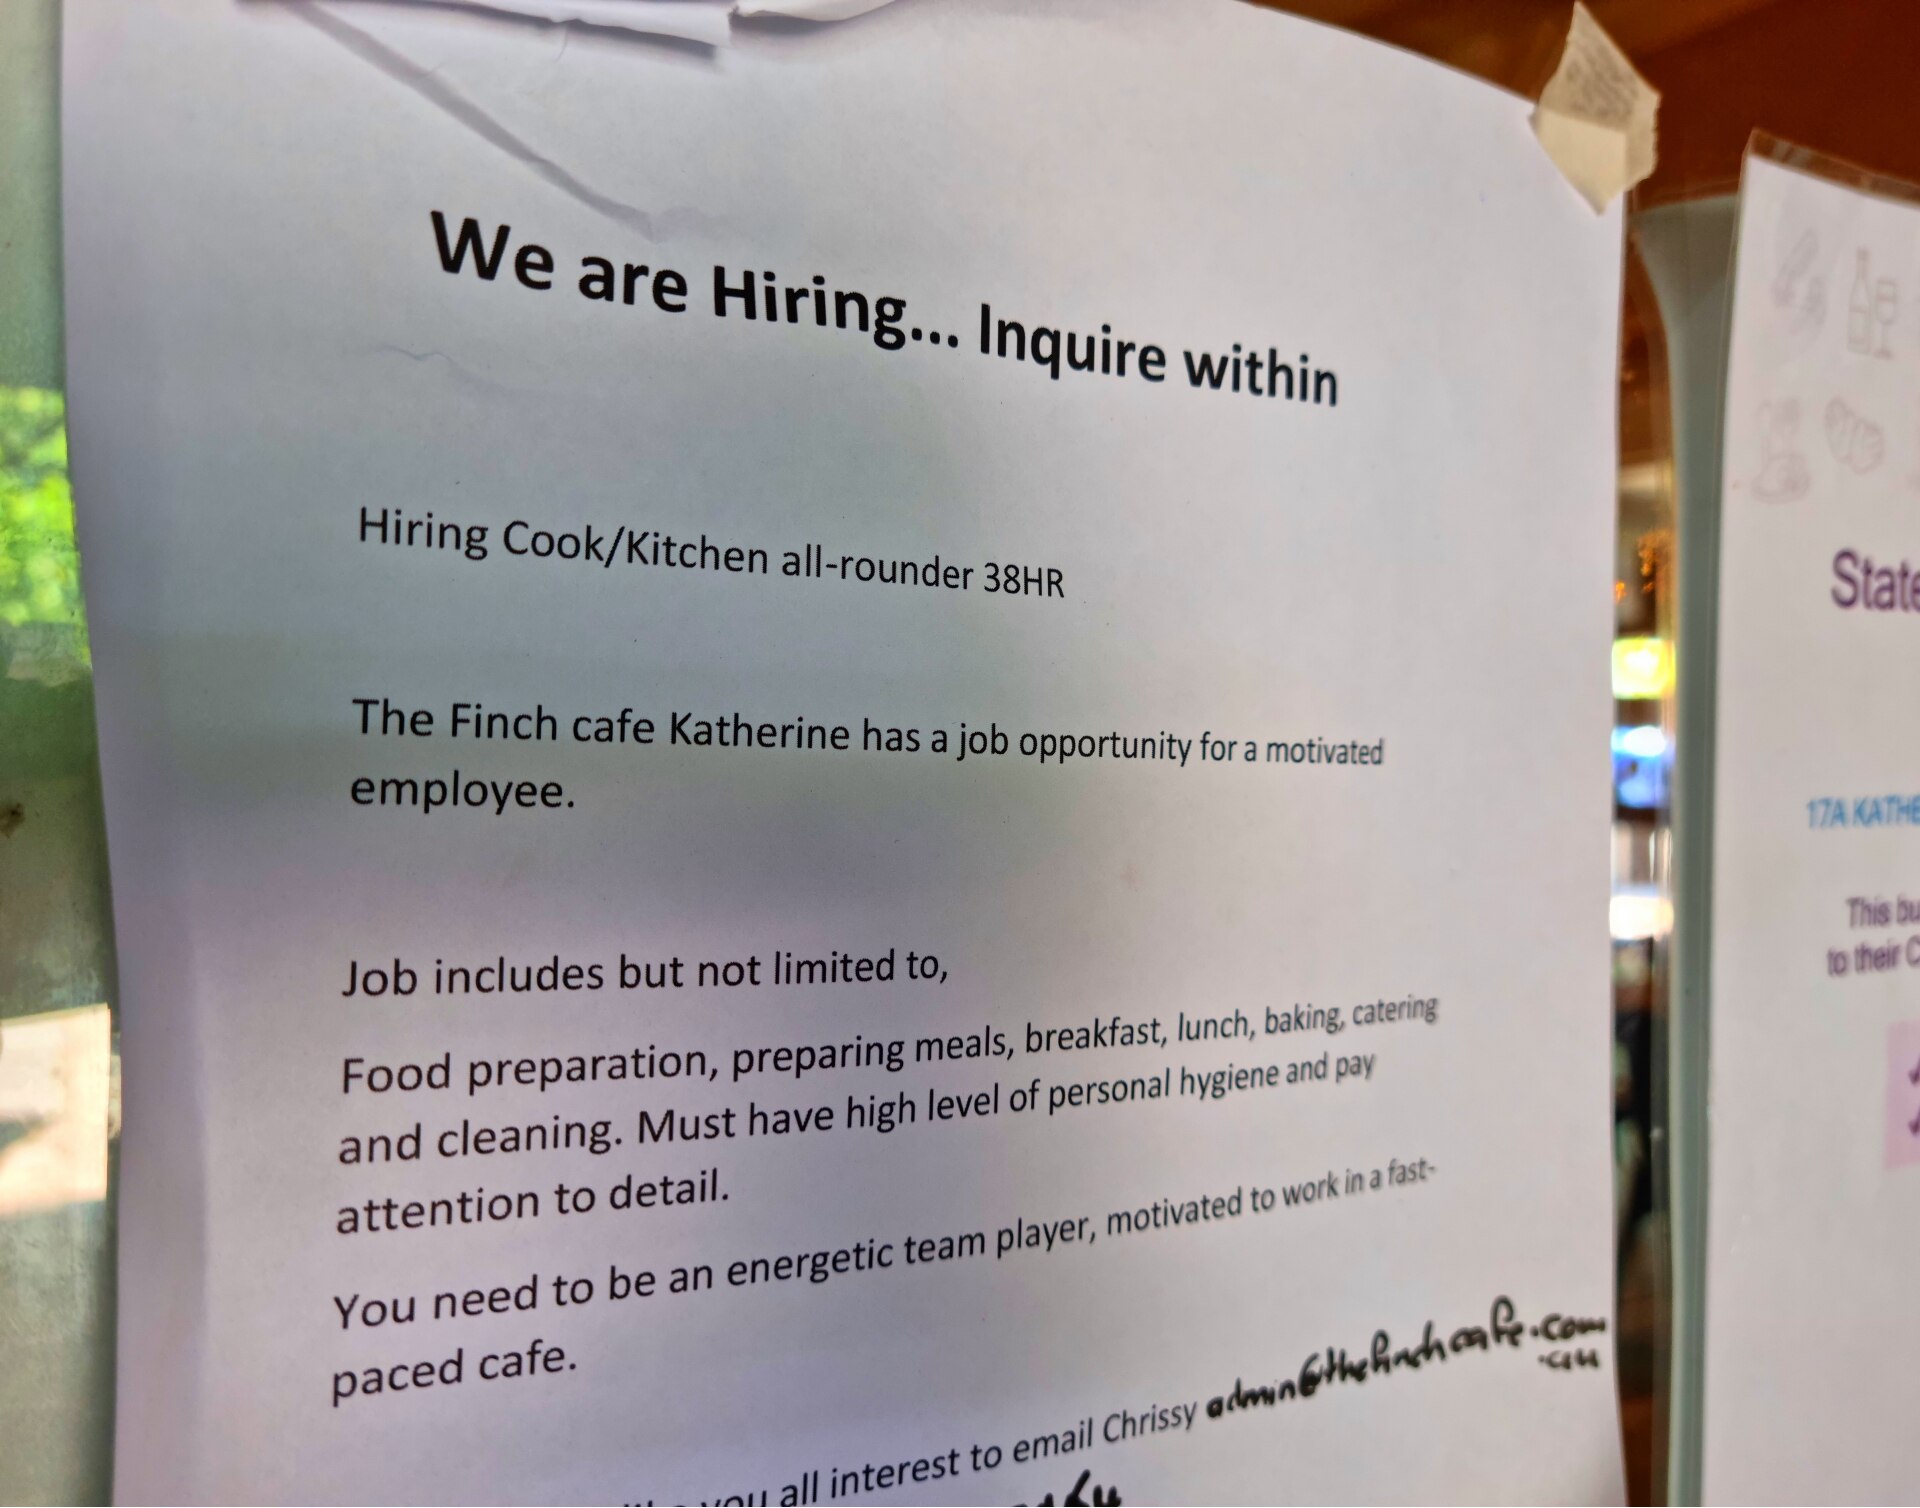 We are Hiring... Inquire within
Hiring Cook/Kitchen all-rounder 38HR
The Finch cafe Katherine has a job opportunity for a motivated
employee.
Job includes but not limited to,
Food preparation, preparing meals, breakfast, lunch, baking, catering
and cleaning. Must have high level of personal hygiene and pay
attention to detail.
You need to be an energetic team player, motivated to work in a fast-
paced cafe.
you all interest to email Chrissy admin@thefinchcafe.com
.au
State
17A KATHE
This bu
to their C